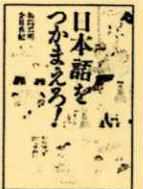 日本語を
つかまえろ！